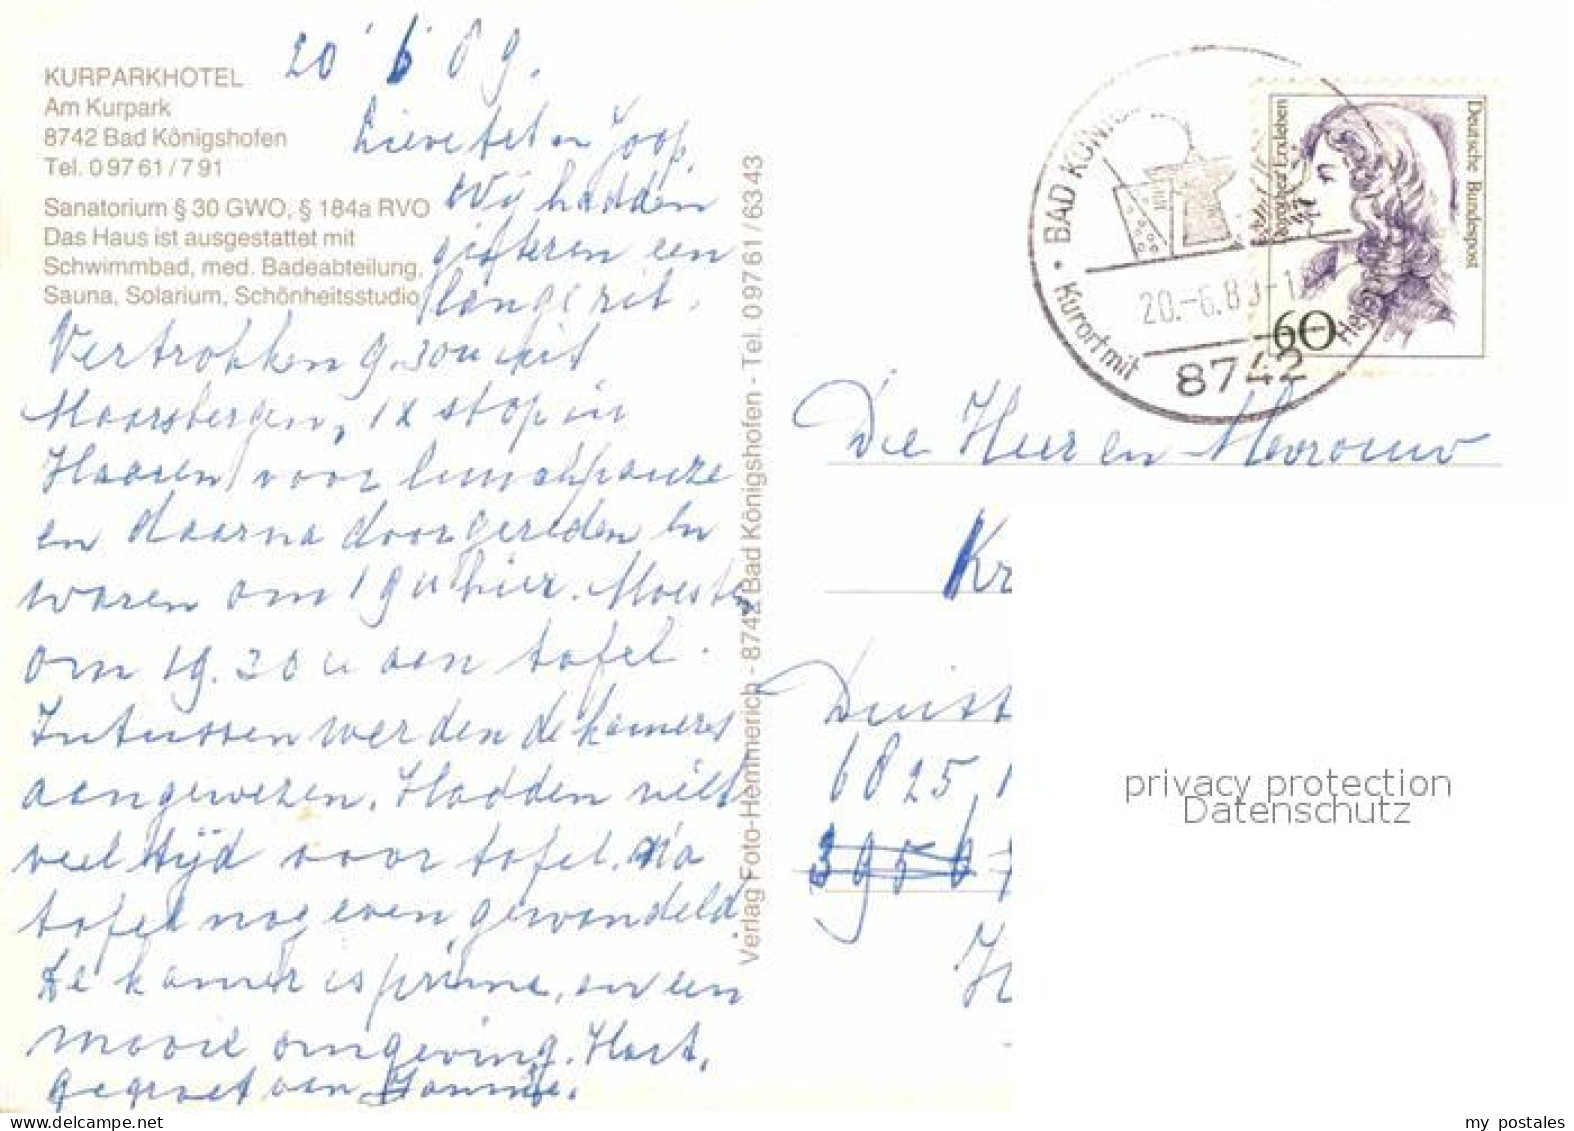 20 6 89.
KURPARKHOTEL
Am Kurpark
8742 Bad Königshofen
Tel. 0 97 61 / 7 91
Sanatorium § 30 GWO, § 184a RVO
Das Haus ist ausgestattet mit
Schwimmbad, med. Badeabteilung,
Sauna, Solarium, Schönheitsstudio
en Joop,
Wij hadden
gisteren een
lange rit.
Vertrokken 9.30 u uit
Maarsbergen, 1x stop in
Haaren voor lunchpauze
en daarna doorgereden En
waren om 19 u hier. Moesten
om 19.30 u aan tafel.
Intussen werden de kamers
aangewezen. Hadden niet
veel tijd voor tafel. Na
tafel nog even gewandeld.
De kamer is prima, en een
mooie omgeving. Hart.
gegroet van
Verlag Foto-Hemmerich - 8742 Bad Königshofen - Tel. 0 97 61 / 63 43
BAD KÖNIG
Kurort mit
Hei
20.-6.89-1
8742
Deutsche Bundespost
Dorothea Erxleben
60
De Heer en Mevrouw
Kr
Duist
6825
3950
H
privacy protection
Datenschutz
my postales
www.delcampe.net